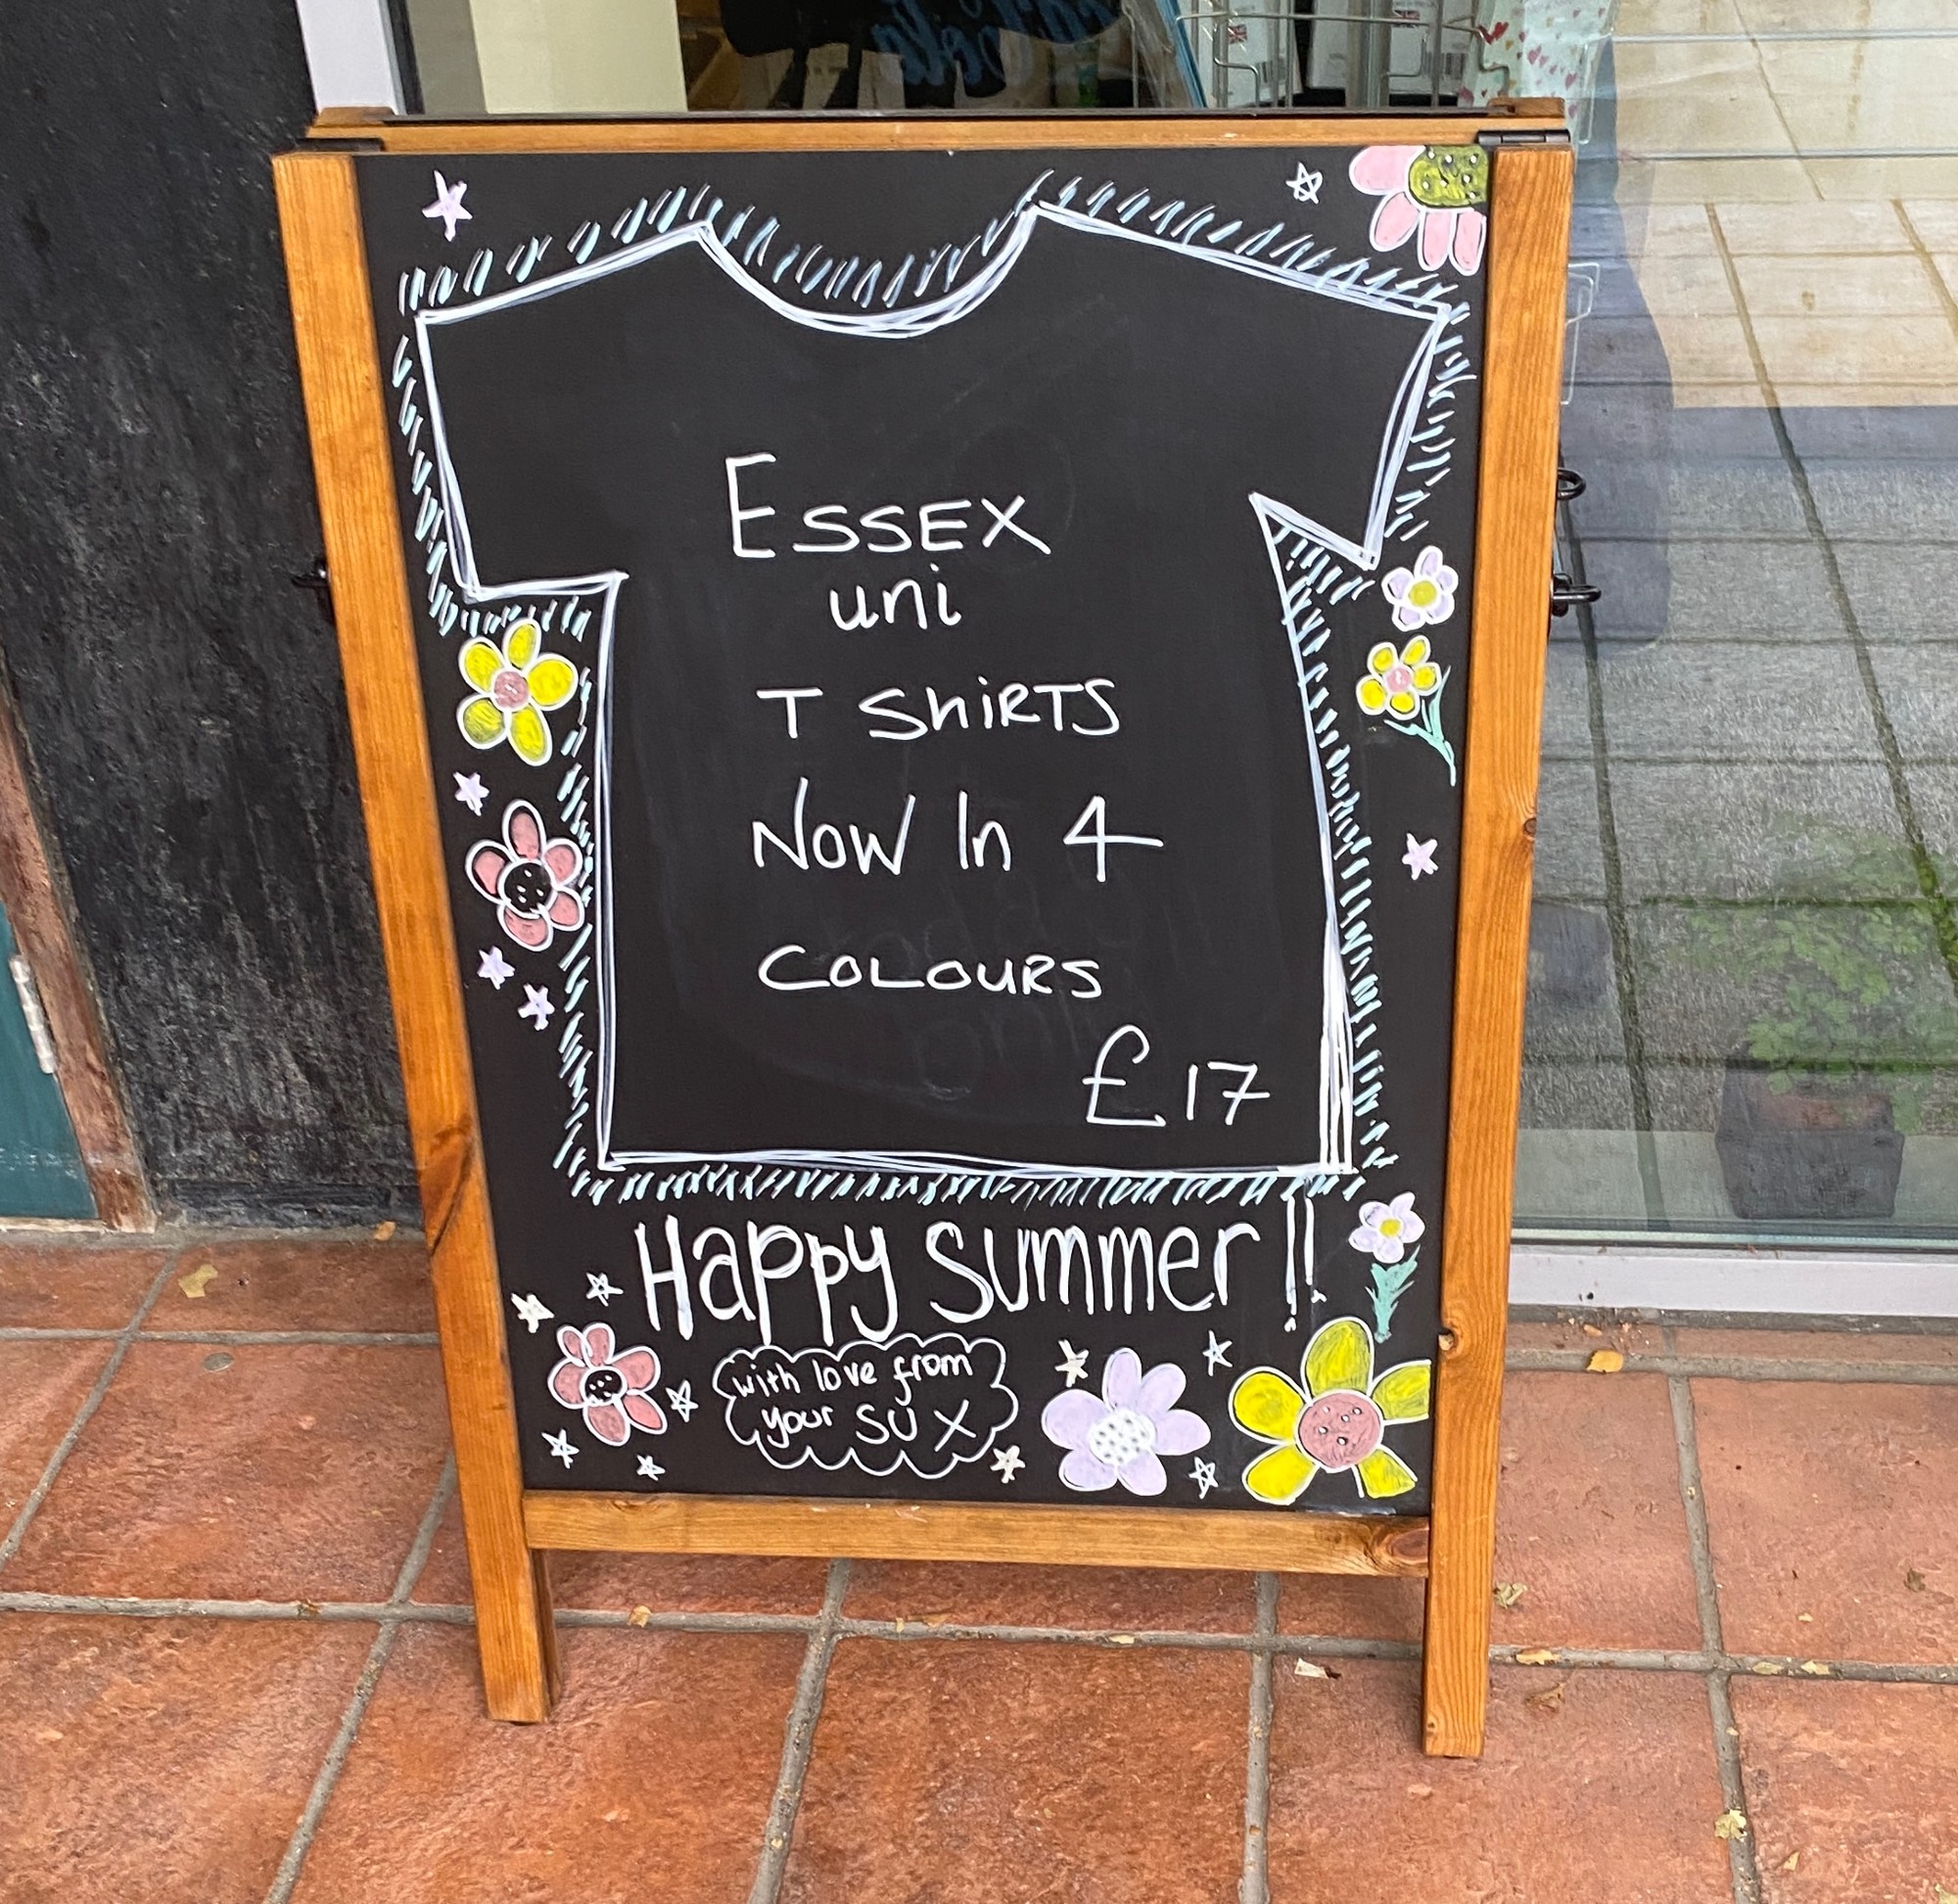 ESSEX
uni
T ShiRTS
Now In 4
COLOURS
£17
Happy Summer!!
with love from
your SU X